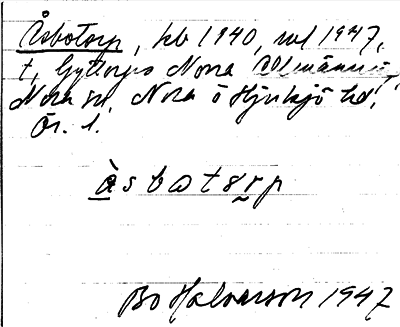 Åsbotorp, hb 1940, ml 1947,
t. Gyttorps Nora Allmänning,
Nora sn, Nora o Hjulsjö hd,
Ör. l.
àsbotɤrp
Bo Halvarson 1947